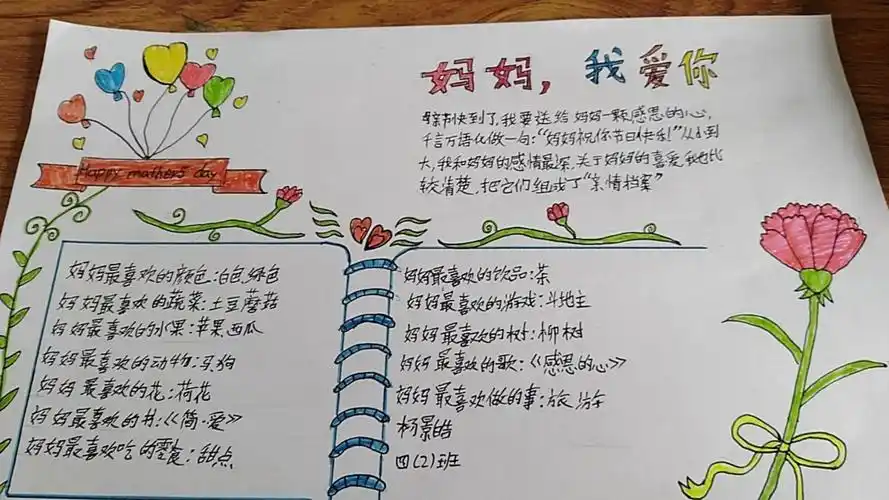 妈妈，我爱你
母亲节快到了，我要送给妈妈一颗感恩的心，
千言万语化做一句：“妈妈祝你节日快乐！”从小到
大，我和妈妈的感情最深，关于妈妈的喜爱我也比
较清楚，把它们组成了“亲情档案”
Happy mothers day
妈妈最喜欢的颜色：白色绿色
妈妈最喜欢的蔬菜：土豆蘑菇
妈妈最喜欢的水果：苹果西瓜
妈妈最喜欢的动物：马狗
妈妈最喜欢的花：荷花
妈妈最喜欢的书：《简·爱》
妈妈最喜欢吃的零食：甜点
妈妈最喜欢的饮品：茶
妈妈最喜欢的游戏：斗地主
妈妈最喜欢的树：柳树
妈妈最喜欢的歌：《感恩的心》
妈妈最喜欢做的事：旅游
杨景皓
四（2）班